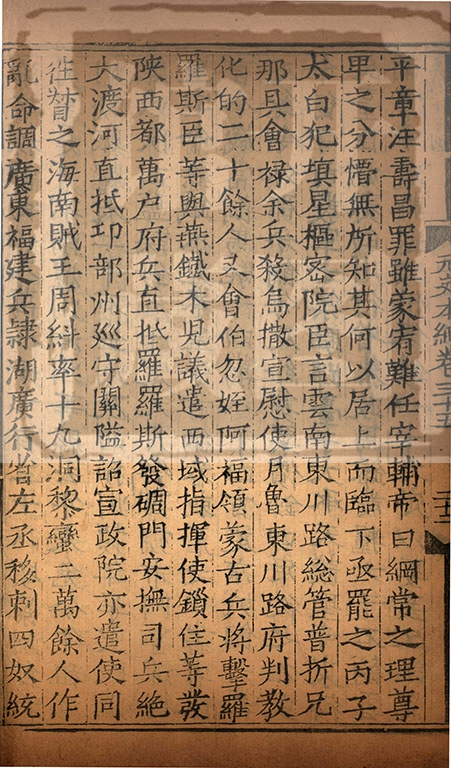 平章汪壽昌罪雖蒙宥難任宰輔帝曰綱常之理尊
卑之分懵無所知其何以居上而臨下亟罷之丙子
太白犯填星樞密院臣言雲南東川路総管普折兄
那具會禄余兵殺烏撒宣慰使月魯東川路府判教
化的二十餘人又會伯忽姪阿福領蒙古兵將擊羅
羅斯臣等與燕鐵木児議遣西域指揮使鎖住等發
陝西都萬户府兵直抵羅羅斯發碉門安撫司兵絶
大渡河直抵卭部州廵守關隘詔宣政院亦遣使同
徃督之海南賊王周糾率十九洞黎蠻二萬餘人作
亂命調廣東福建兵隷湖廣行省左丞移剌四奴統
元史本紀卷三十五